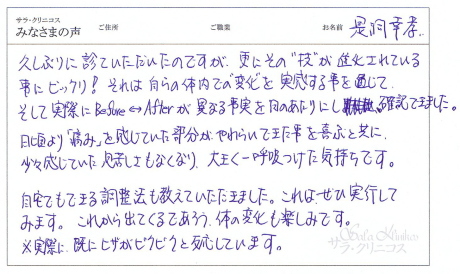 サラ・クリニコス
みなさまの声 ご住所 ご職業 お名前 是洞幸孝
久しぶりに診ていただいたのですが、更にその"技"が進化されている
事にビックリ! それは自らの体内で"変化"を実感する事を通じて
そして実際にBefore↔Afterが異なる事実を目のあたりにし 確認できました。
日頃より「痛み」を感じていた部分がやわらいできた事を喜ぶと共に
少々感じていた息苦しさもなくなり、大きく一呼吸つけた気持ちです。
自宅でもできる調整法も教えていただきました。これは、ぜひ実行して
みます。これから出てくるであろう、体の変化も楽しみです。
※実際に、既にヒザがピクピクと反応しています。
Sala Klinikos
サラ・クリニコス